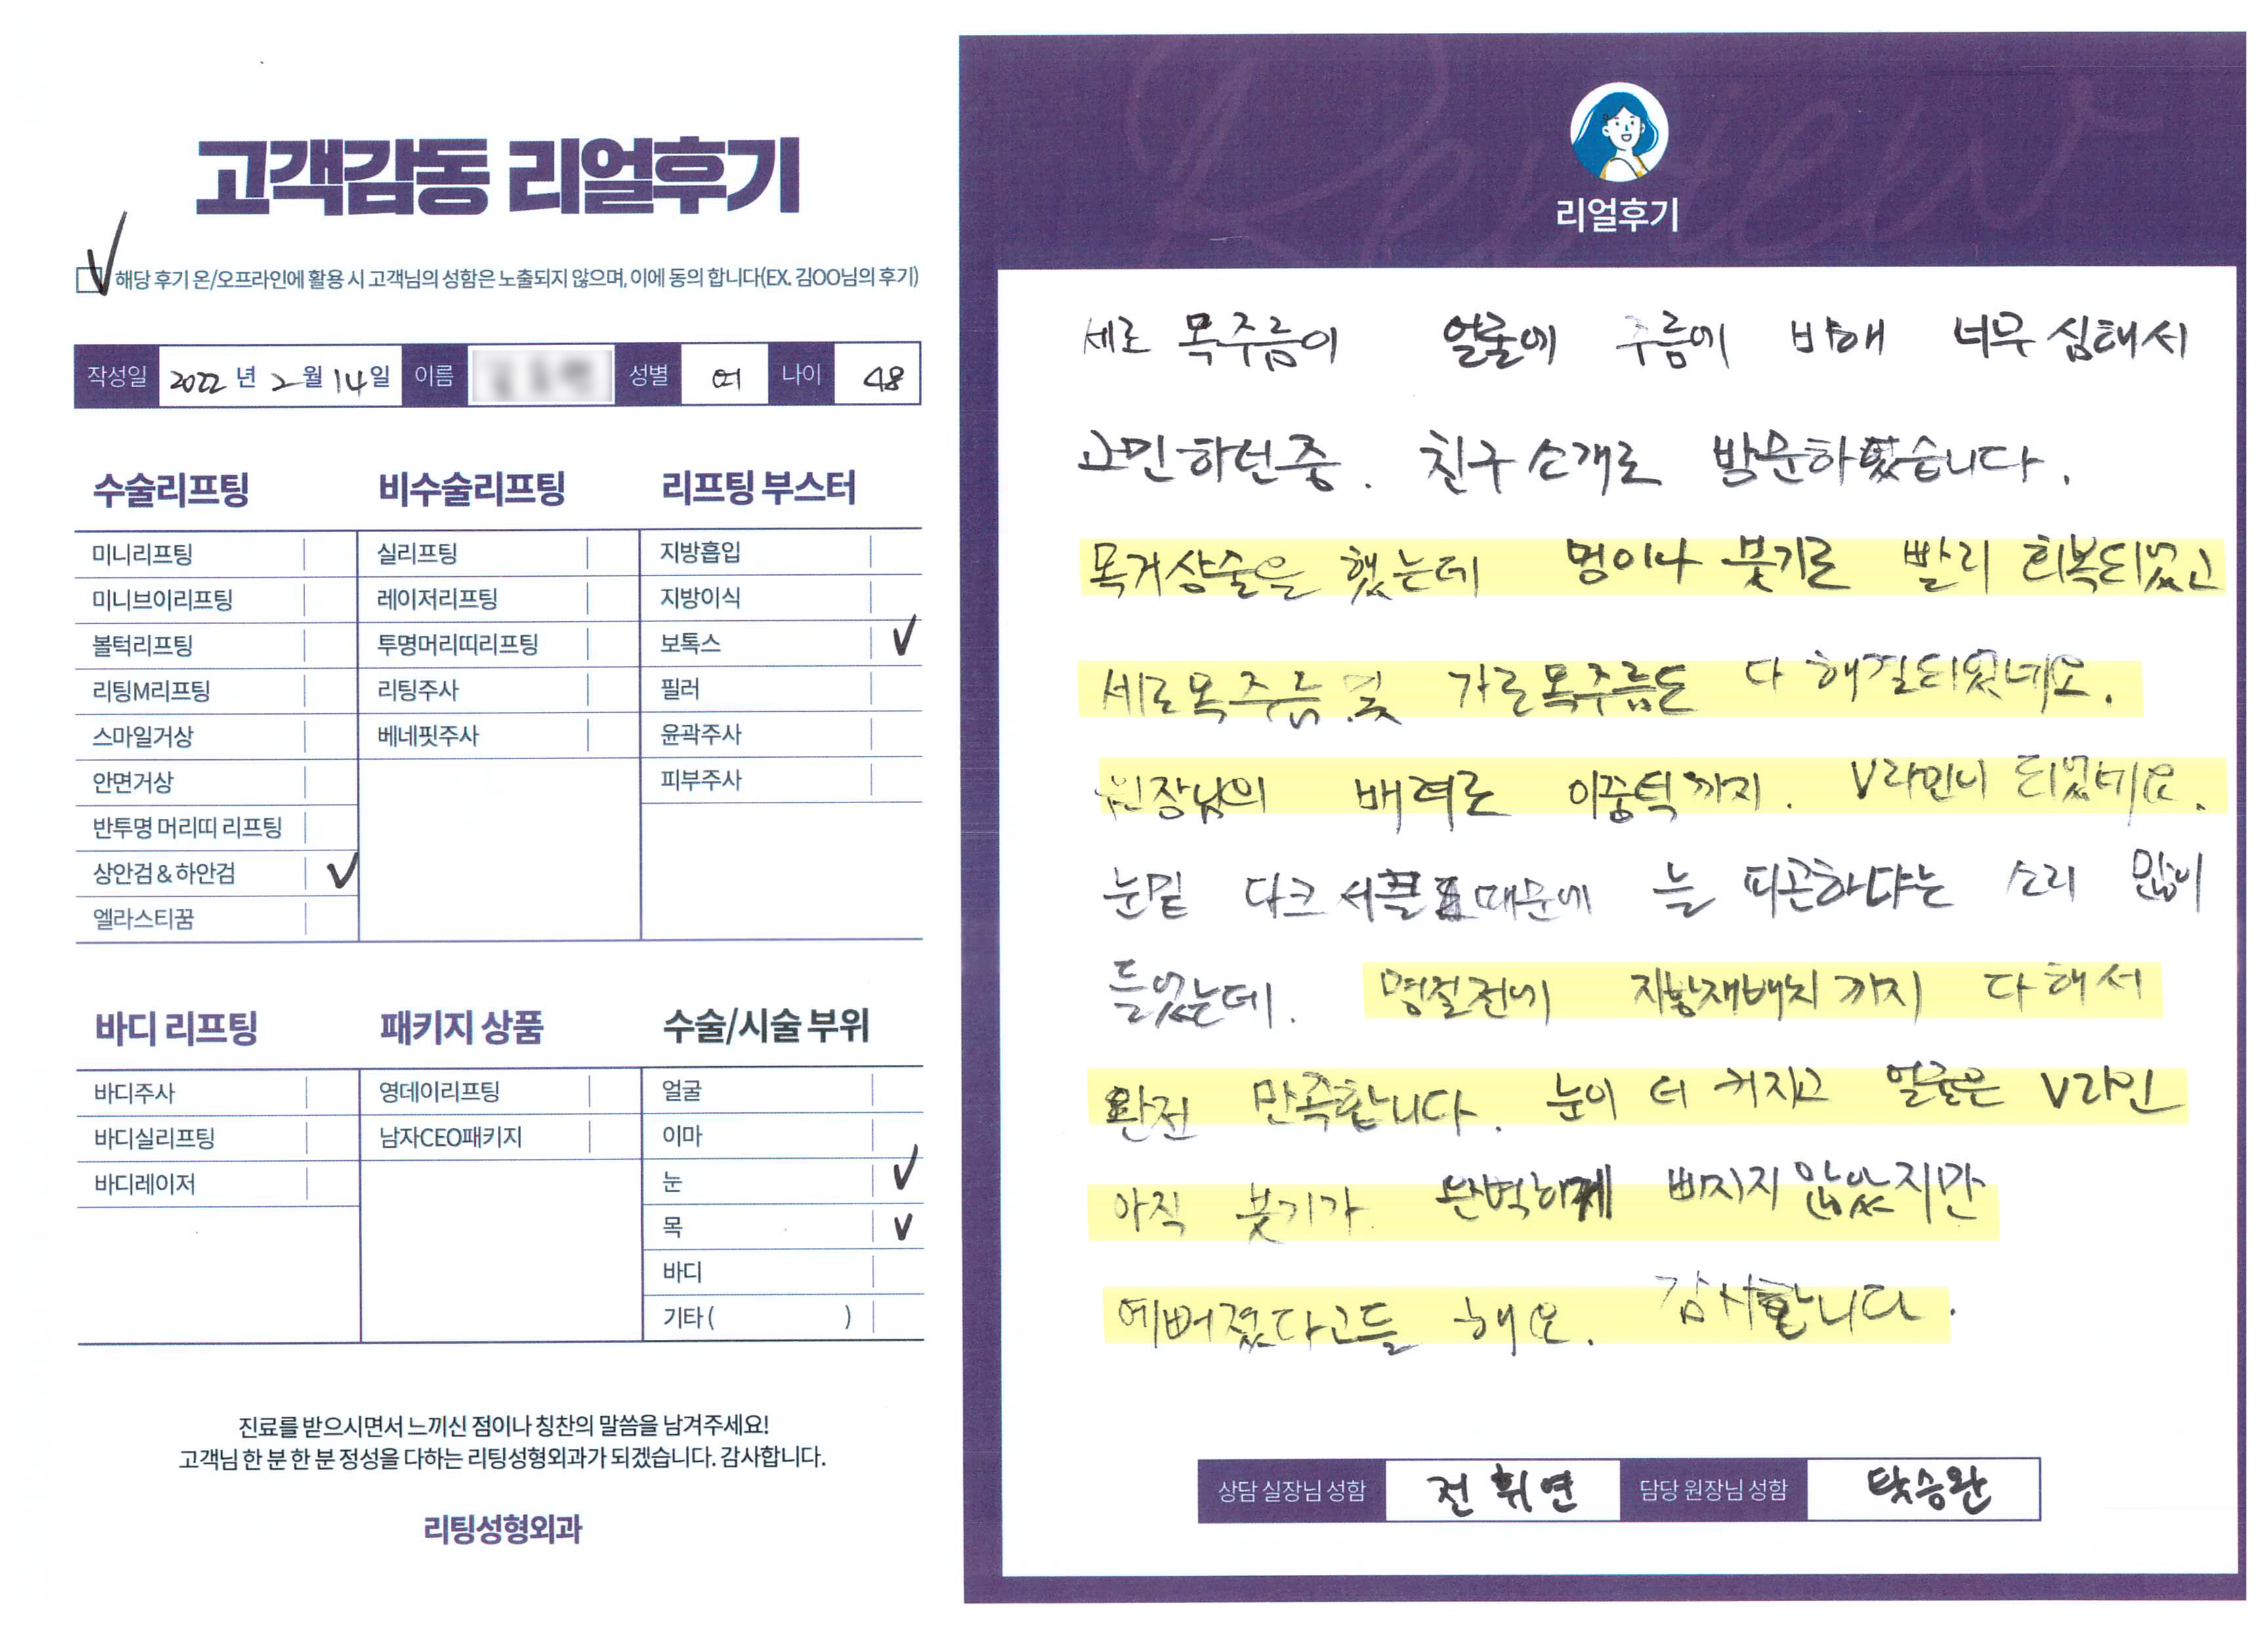 고객감동 리얼후기
해당 후기 온/오프라인에 활용 시 고객님의 성함은 노출되지 않으며, 이에 동의 합니다(EX. 김OO님의 후기)
작성일 2022 년 2 월 14 일 이름 성별 여 나이 48
수술리프팅
미니리프팅
미니브이리프팅
볼턱리프팅
리팅M리프팅
스마일거상
안면거상
반투명 머리띠 리프팅
상안검 & 하안검 ✓
엘라스티꿈
비수술리프팅
실리프팅
레이저리프팅
투명머리띠리프팅
리팅주사
베네핏주사
리프팅 부스터
지방흡입
지방이식
보톡스 ✓
필러
윤곽주사
피부주사
바디 리프팅
바디주사
바디실리프팅
바디레이저
패키지 상품
영데이리프팅
남자CEO패키지
수술/시술 부위
얼굴
이마
눈 ✓
목 ✓
바디
기타 ( )
진료를 받으시면서 느끼신 점이나 칭찬의 말씀을 남겨주세요!
고객님 한 분 한 분 정성을 다하는 리팅성형외과가 되겠습니다. 감사합니다.
리팅성형외과
Review
리얼후기
세로 목주름이 얼굴에 주름에 비해 너무 심해서
고민하던중. 친구 소개로 방문하였습니다.
목거상술을 했는데 멍이나 붓기로 빨리 회복되었고
세로목주름 및 가로목주름도 다 해결되었네요.
원장님의 배려로 이중턱까지. V라인이 되었네요.
눈밑 다크서클 때문에 늘 피곤하냐는 소리 많이
들었는데. 명절전에 지방재배치까지 다 해서
완전 만족합니다. 눈이 더 커지고 얼굴은 V라인
아직 붓기가 완벽하게 빠지지 않았지만
예뻐졌다고들 해요. 감사합니다.
상담 실장님 성함 전휘연 담당 원장님 성함 탁승완